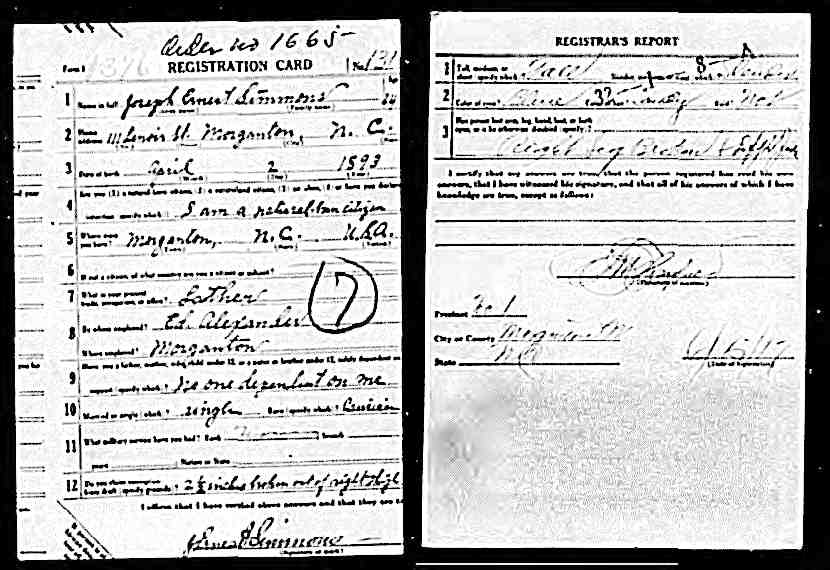 Order no 1665
Form 1 1376 REGISTRATION CARD No. 131
1 Name in full Joseph Ernest Simmons Age 24
2 Home address 111 St. Morganton, N. C.
3 Date of birth April 2 1893
4 I am a natural born citizen
5 Where were you born? Morganton, N.C. U.S.A.
6 If not a citizen, of what country are you a citizen or subject?
7 What is your present trade, occupation, or office? Lather
8 By whom employed? Ed. Alexander
Where employed? Morganton
9 Have you a father, mother, wife, child under 12, or a sister or brother under 12, solely dependent on
support (specify which)? No one dependent on me
10 Married or single (which)? single Race (specify which)? Caucasian
11 What military service have you had? Rank branch
years Nation or State
12 Do you claim exemption from draft (specify grounds)? 2 ½ inches broken out of right thigh
I affirm that I have verified above answers and that they are
Ernest Simmons
7
REGISTRAR'S REPORT
1 Tall, medium, or short (specify which)? Slender, medium, or stout (which)?
2 Color of eyes? Blue Color of hair? Bald? No
3 Has person lost arm, leg, hand, foot, or both eyes, or is he otherwise disabled (specify)?
Right leg Broken
I certify that my answers are true, that the person registered has read his own
answers, that I have witnessed his signature, and that all of his answers of which I have
knowledge are true, except as follows:
(Signature of registrar)
Precinct No 1
City or County Morganton
State N.C.
(Date of registration)